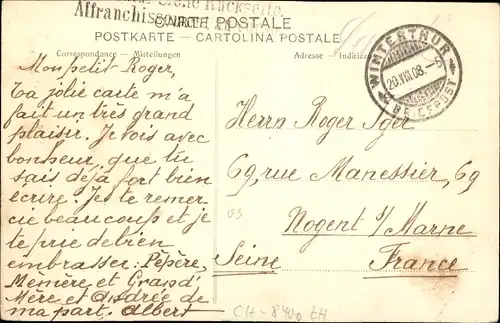 Siehe Rückseite.
Affranchissement
CARTE POSTALE
POSTKARTE - CARTOLINA POSTALE
Correspondance - Mitteilungen
Adresse - Indirizzo
WINTERTHUR
20.VIII.08.-8
BRIEFPOST
Mon petit Roger,
Ta jolie carte m'a
fait un très grand
plaisir. Je vois avec
bonheur, que tu
sais déjà fort bien
écrire. Je te remer-
cie beaucoup et je
te prie de bien
embrasser: Pépère,
Memère et Grand'
Mère et Andrée de
ma part. Albert
Herrn Roger
69, rue Manessier, 69
Nogent s/Marne
Seine
France
CH-8400 ZH